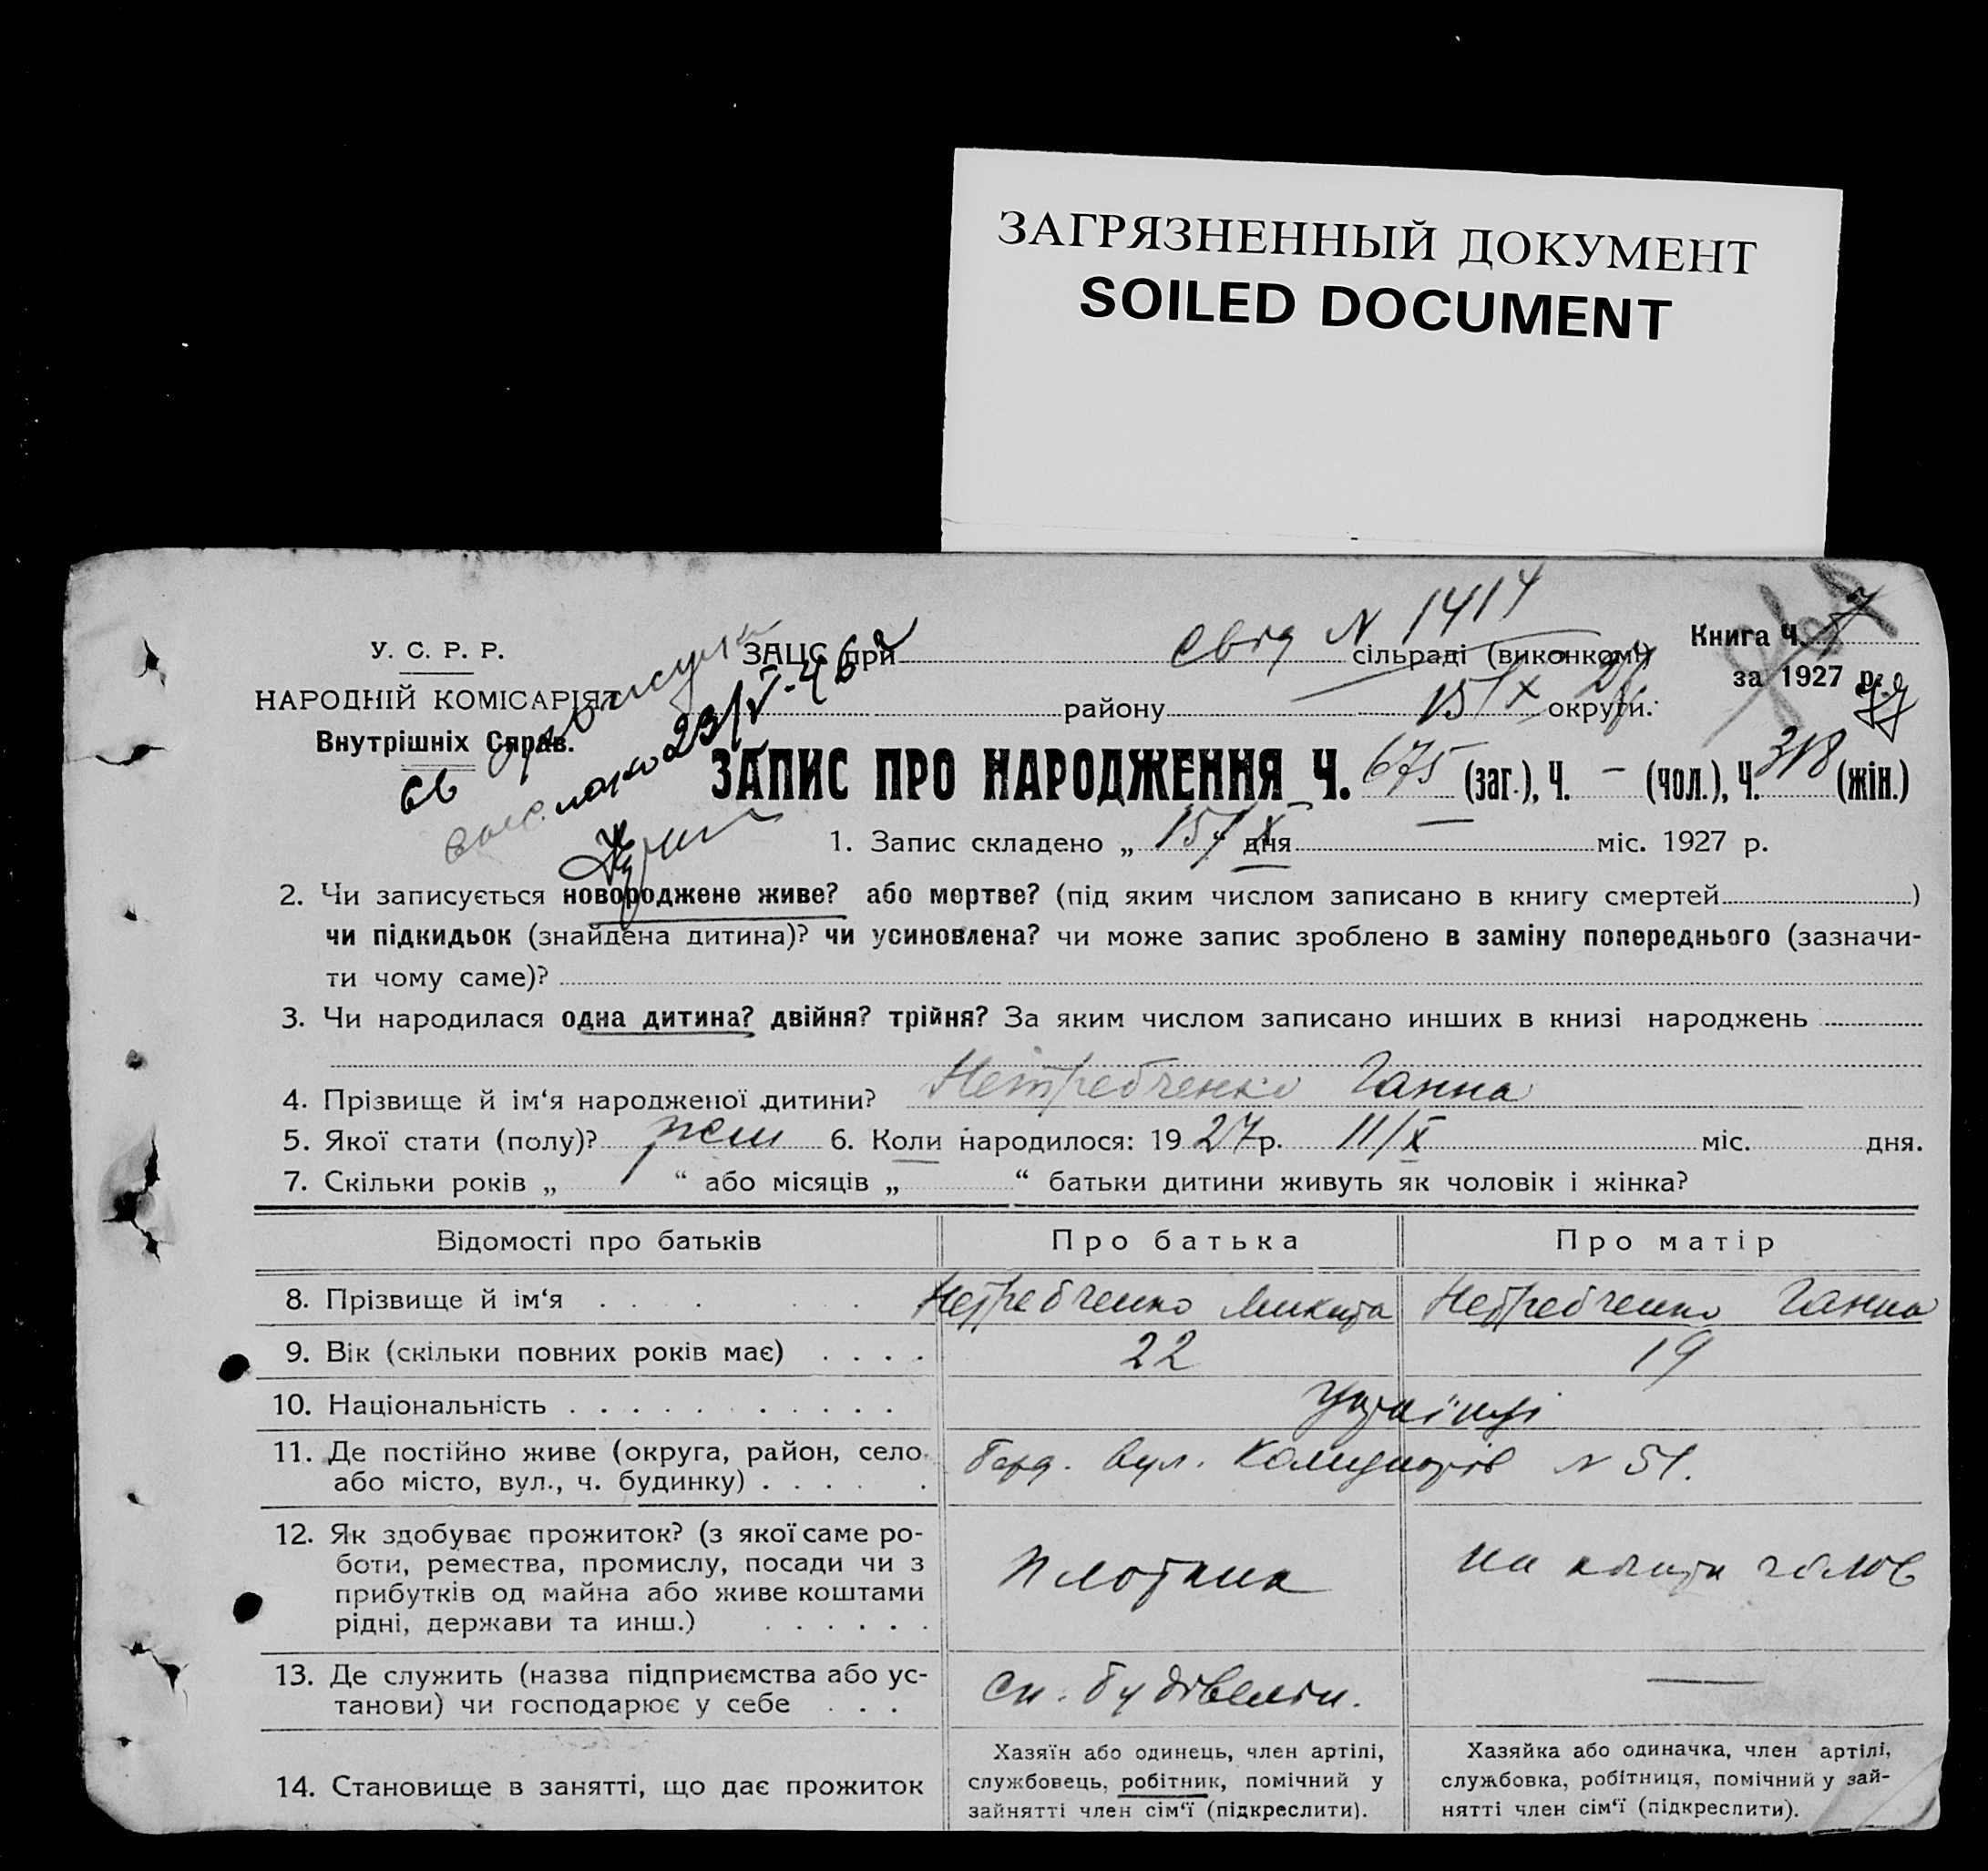 ЗАГРЯЗНЕННЫЙ ДОКУМЕНТ
SOILED DOCUMENT
У. С. Р. Р.
НАРОДНІЙ КОМІСАРІЯТ
Внутрішніх Справ.
свід N 1414
ЗАЦС при сільраді (виконкомі)
Книга Ч. 7
за 1927 р.
15/X 27
району округи.
29/V-46 г
ЗАПИС ПРО НАРОДЖЕННЯ Ч. 675 (заг.), Ч. – (чол.), Ч. 318 (жін.)
1. Запис складено „15/X“ дня — міс. 1927 р.
2. Чи записується новороджене живе? або мертве? (під яким числом записано в книгу смертей )
чи підкидьок (знайдена дитина)? чи усиновлена? чи може запис зроблено в заміну попереднього (зазначи-
ти чому саме)?
3. Чи народилася одна дитина? двійня? трійня? За яким числом записано инших в книзі народжень
4. Прізвище й ім‘я народженої дитини? Нетребченко Ганна
5. Якої стати (полу)? жен 6. Коли народилося: 1927 р. 11/X міс. дня.
7. Скільки років „ “ або місяців „ “ батьки дитини живуть як чоловік і жінка?
Відомості про батьків Про батька Про матір
8. Прізвище й ім‘я Нетребченко Микита Нетребченко Ганна
9. Вік (скільки повних років має) 22 19
10. Національність українці
11. Де постійно живе (округа, район, село
або місто, вул., ч. будинку) вул. Комунарів N 51.
12. Як здобуває прожиток? (з якої саме ро-
боти, ремества, промислу, посади чи з
прибутків од майна або живе коштами
рідні, держави та инш.)
Плотник на кошти чолов
13. Де служить (назва підприємства або ус-
танови) чи господарює у себе
сп. будівельн. —
14. Становище в занятті, що дає прожиток
Хазяїн або одинець, член артілі,
службовець, робітник, помічний у
зайнятті член сім‘ї (підкреслити).
Хазяйка або одиначка, член артілі,
службовка, робітниця, помічний у зай-
нятті член сім‘ї (підкреслити).